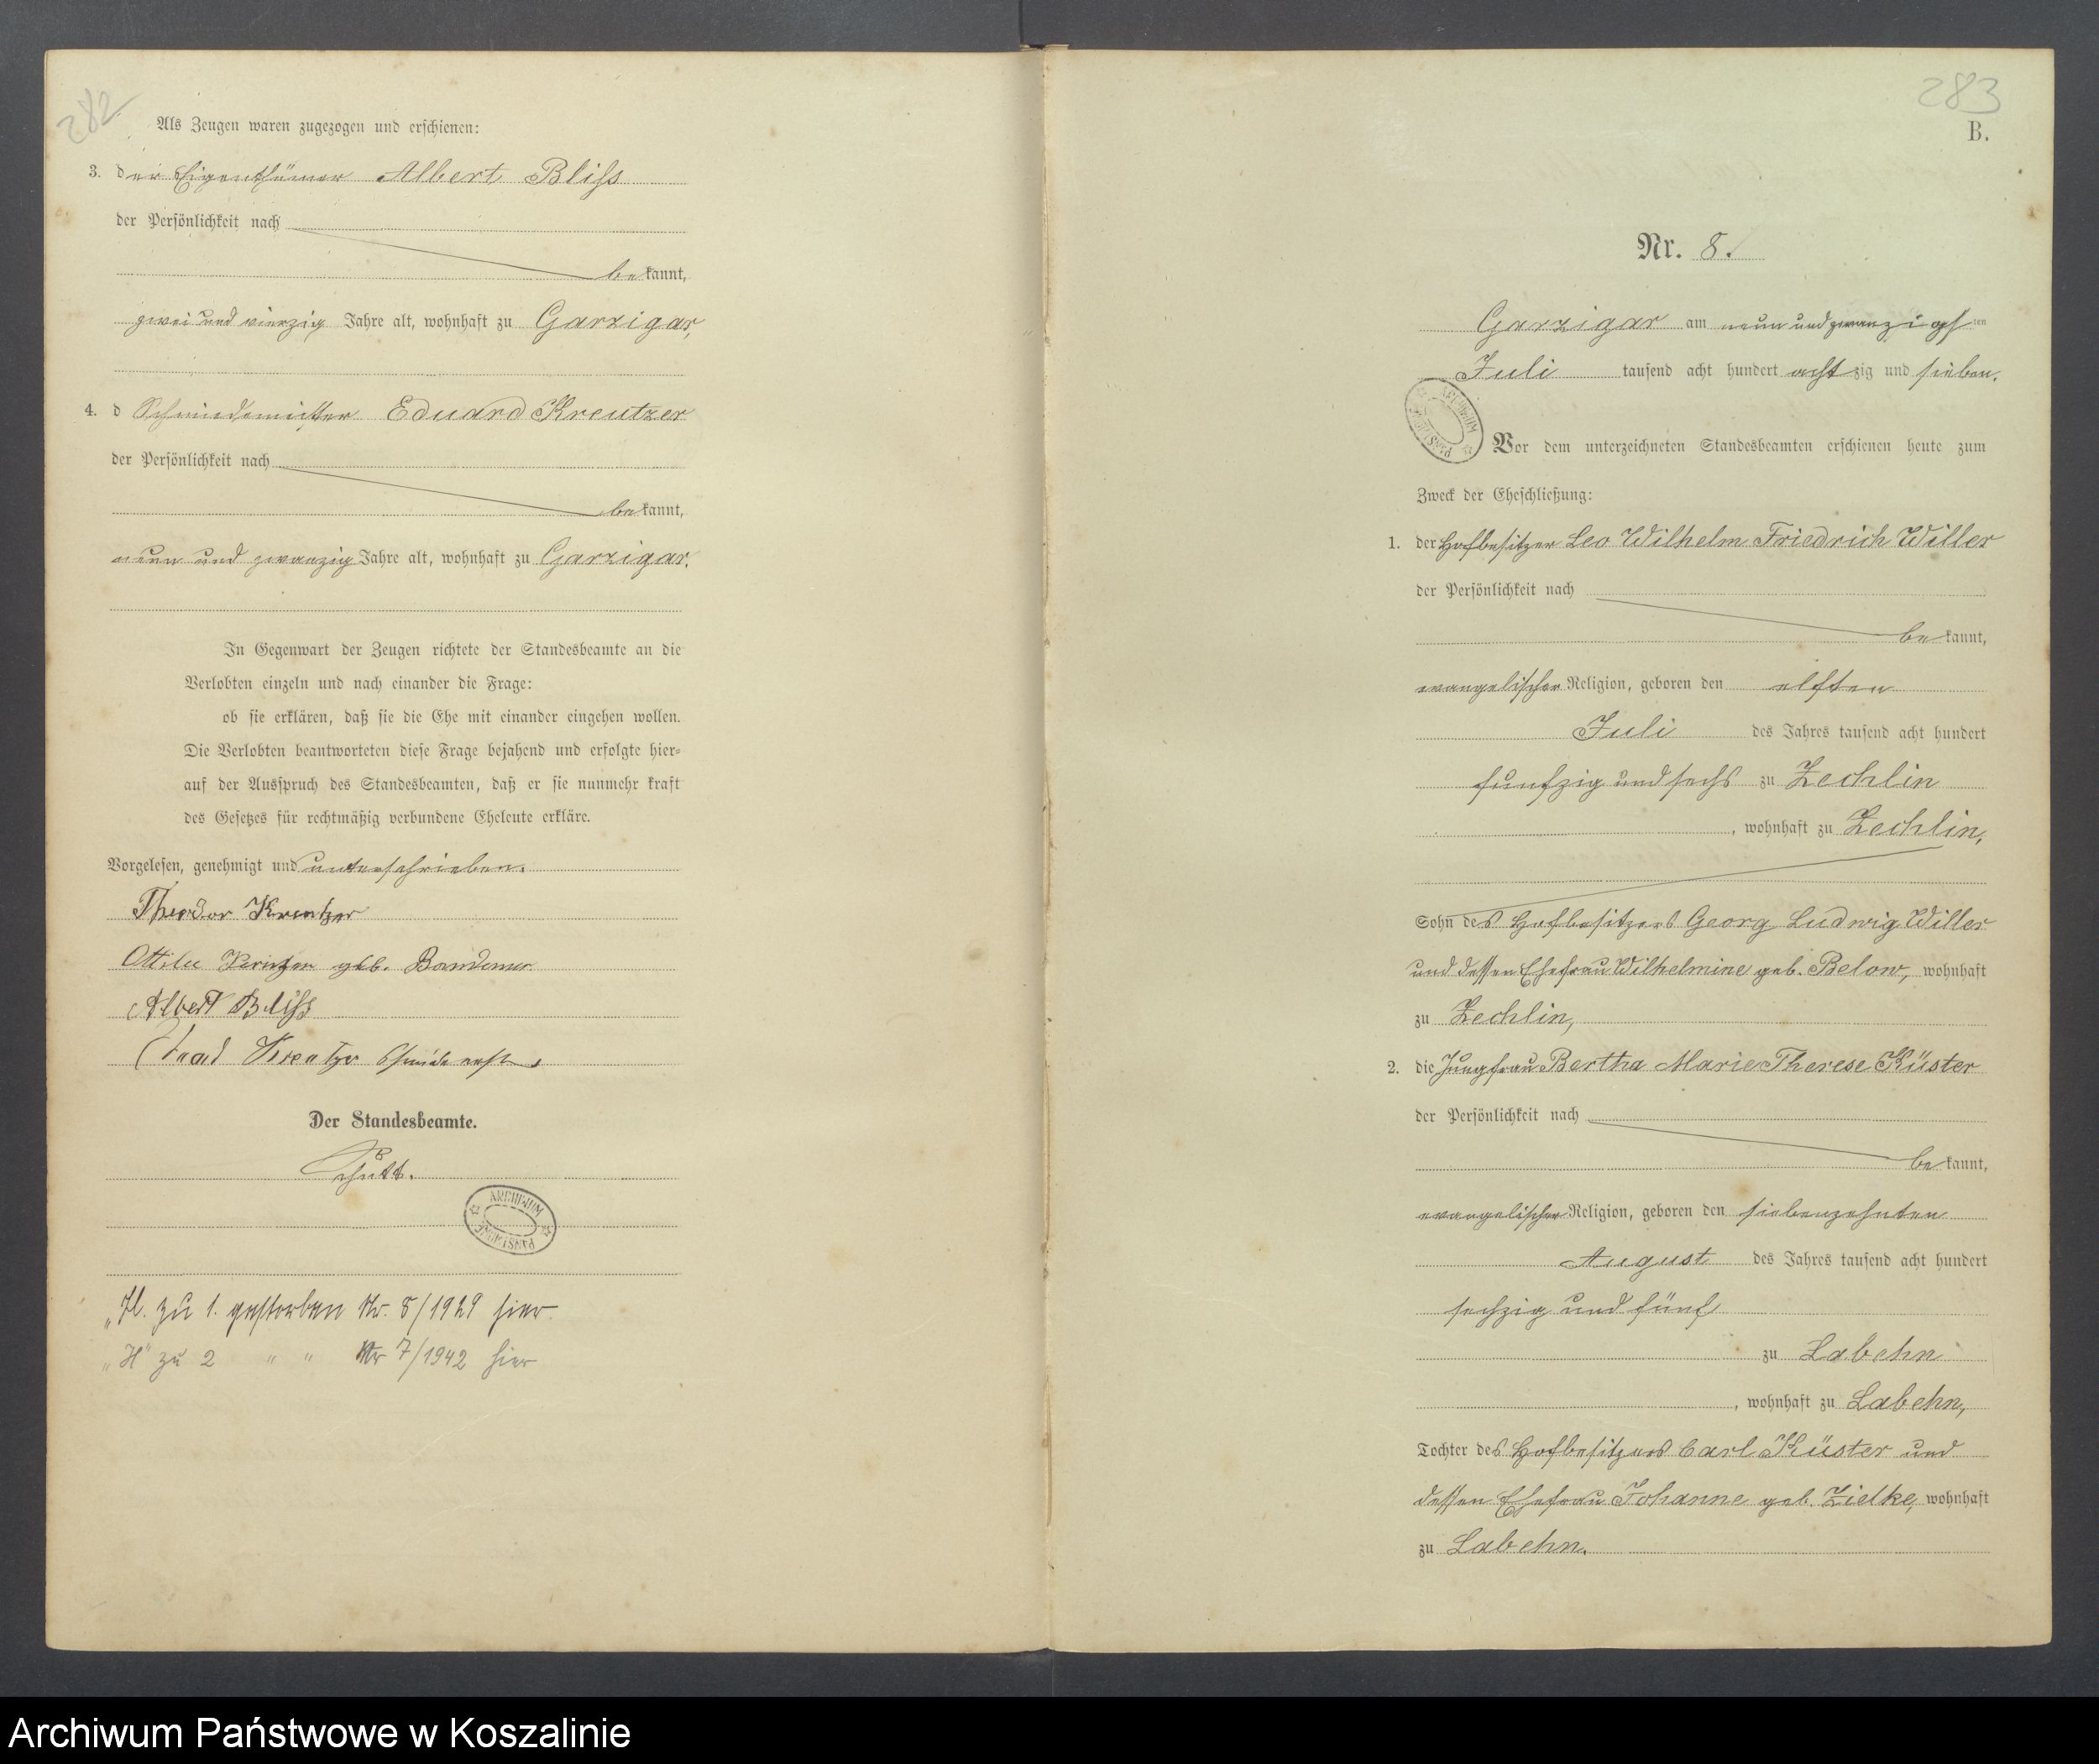 282
Als Zeugen waren zugezogen und erschienen:
3. der Eigenthümer Albert Bliss
der Persönlichkeit nach
bekannt,
zwei und vierzig Jahre alt, wohnhaft zu Garzigar,
4. d Schmiedemeister Eduard Kreutzer
der Persönlichkeit nach
bekannt,
neun und zwanzig Jahre alt, wohnhaft zu Garzigar.
In Gegenwart der Zeugen richtete der Standesbeamte an die
Verlobten einzeln und nach einander die Frage:
ob sie erklären, daß sie die Ehe mit einander eingehen wollen.
Die Verlobten beantworteten diese Frage bejahend und erfolgte hier-
auf der Ausspruch des Standesbeamten, daß er sie nunmehr kraft
des Gesetzes für rechtmäßig verbundene Eheleute erkläre.
Vorgelesen, genehmigt und unterschrieben.
Theodor Kreutzer
geb. Bandemer
Albert Bliss
Kreutzer
Der Standesbeamte.
ARCHIWUM PAŃSTWOWE
„H. zu 1. gestorben Nr. 8/1929 hier.
„H" zu 2 " " Nr 7/1942 hier
283
B.
Nr. 8.
Garzigar am neun und zwanzigsten
Juli tausend acht hundert achtzig und sieben.
ARCHIWUM PAŃSTWOWE
Vor dem unterzeichneten Standesbeamten erschienen heute zum
Zweck der Eheschließung:
1. der Hofbesitzer Leo Wilhelm Friedrich Willer
der Persönlichkeit nach
bekannt,
evangelischer Religion, geboren den elften
Juli des Jahres tausend acht hundert
funfzig und sechs zu Zechlin
, wohnhaft zu Zechlin,
Sohn des Hofbesitzers Georg Ludwig Willer
und dessen Ehefrau Wilhelmine geb. Below, wohnhaft
zu Zechlin,
2. die Jungfrau Bertha Marie Therese Küster
der Persönlichkeit nach
bekannt,
evangelischer Religion, geboren den siebenzehnten
August des Jahres tausend acht hundert
sechzig und fünf
zu Labehn
, wohnhaft zu Labehn,
Tochter des Hofbesitzers Carl Küster und
dessen Ehefrau Johanne geb. Zielke, wohnhaft
zu Labehn.
Archiwum Państwowe w Koszalinie